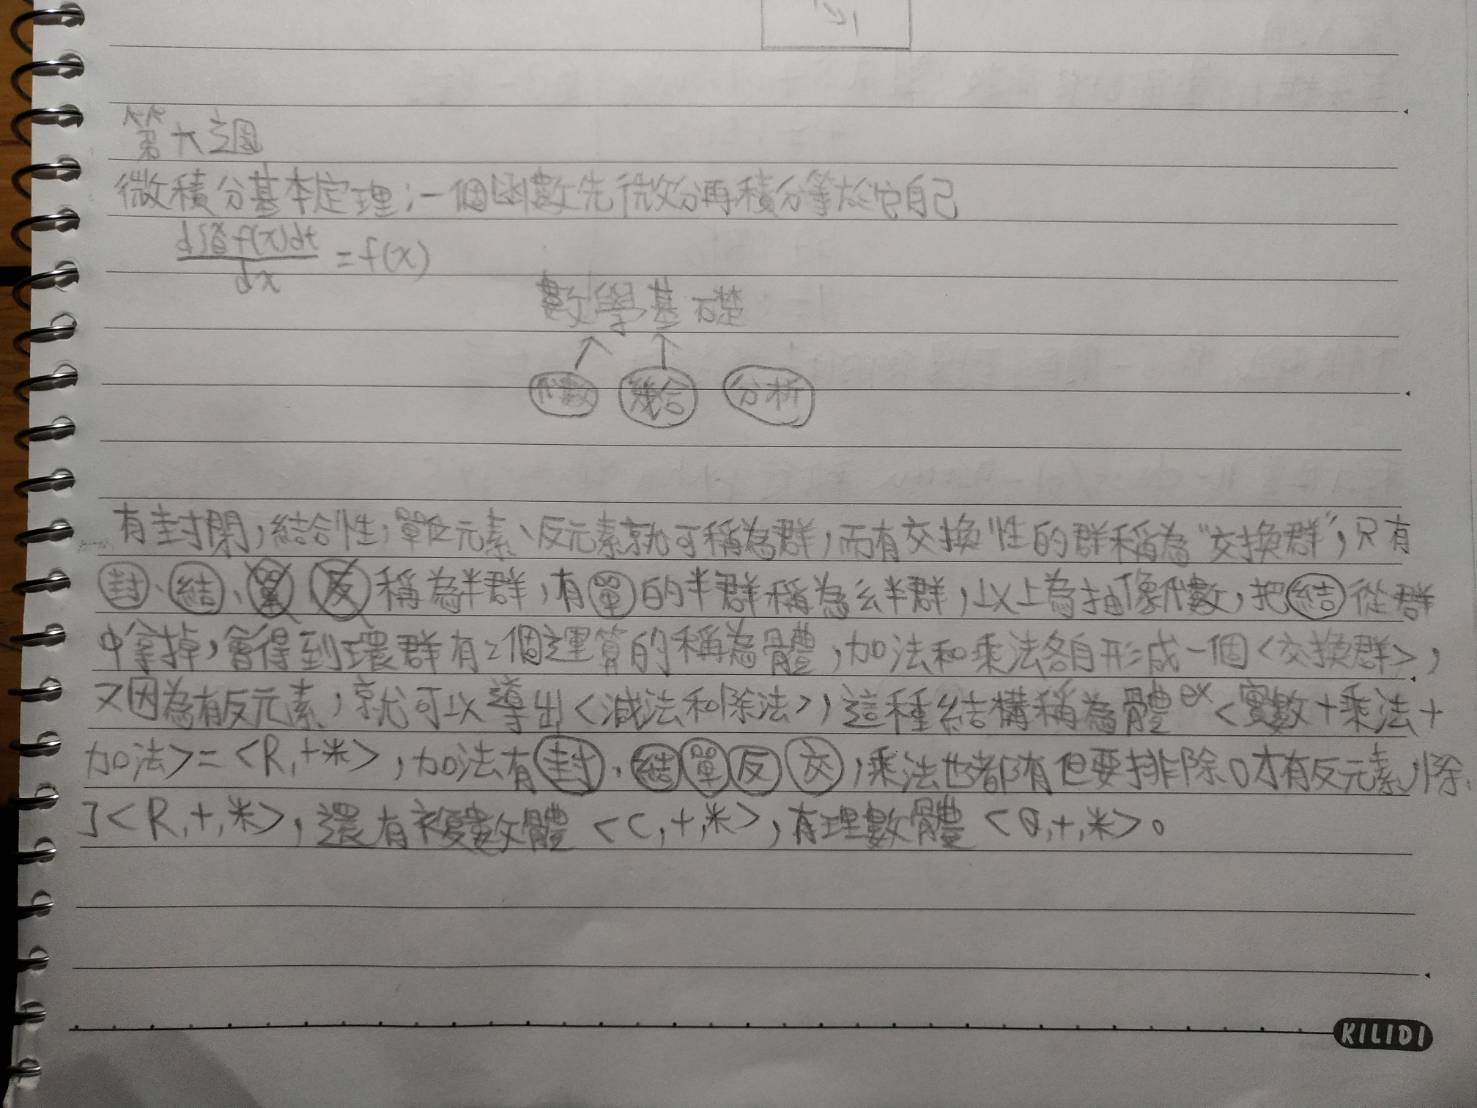 第六週
微積分基本定理:一個函數先微分再積分等於它自己
d∫f(x)dt
dx
=f(x)
數學基礎
代數 幾合 分析
有封閉,結合性,單位元素、反元素就可稱為群,而有交換性的群稱為"交換群",只有
封、結、單 反 稱為半群,有單的半群稱為么半群,以上為抽像代數,把結從群
中拿掉,會得到環群有2個運算的稱為體,加法和乘法各自形成一個<交換群>,
又因為有反元素,就可以導出<減法和除法>,這種結構稱為體ex<實數+乘法+
加法>=<R,+*>,加法有封、結單反交,乘法也都有但要排除0才有反元素,除
了<R,+,*>,還有複數體<C,+,*>,有理數體<Q,+,*>。
KILIDI